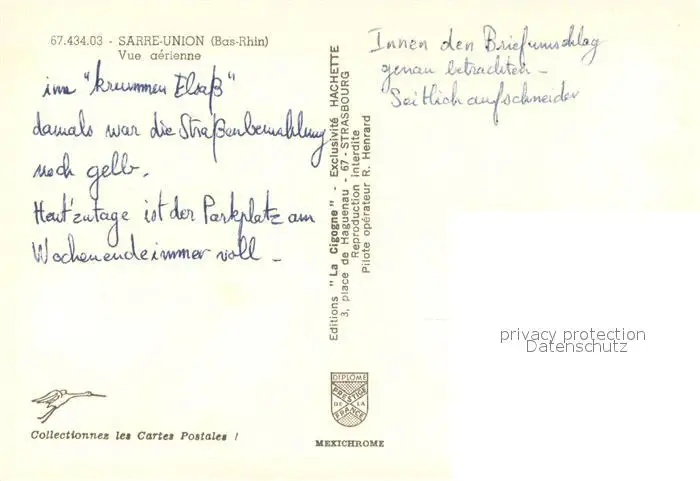 67.434.03 - SARRE-UNION (Bas-Rhin)
Vue aérienne
im "krummen Elsaß"
damals war die Straßenbemahlung
noch gelb.
Heut'zutage ist der Parkplatz am
Wochenende immer voll -
Innen den Briefumschlag
genau betrachten -
Seitlich aufschneider
Editions "La Cigogne" - Exclusivité HACHETTE
3, place de Haguenau - 67 - STRASBOURG
Reproduction interdite
Pilote opérateur R. Henrard
privacy protection
Datenschutz
DIPLOME
PRESTIGE
DE LA
FRANCE
MEXICHROME
Collectionnez les Cartes Postales !